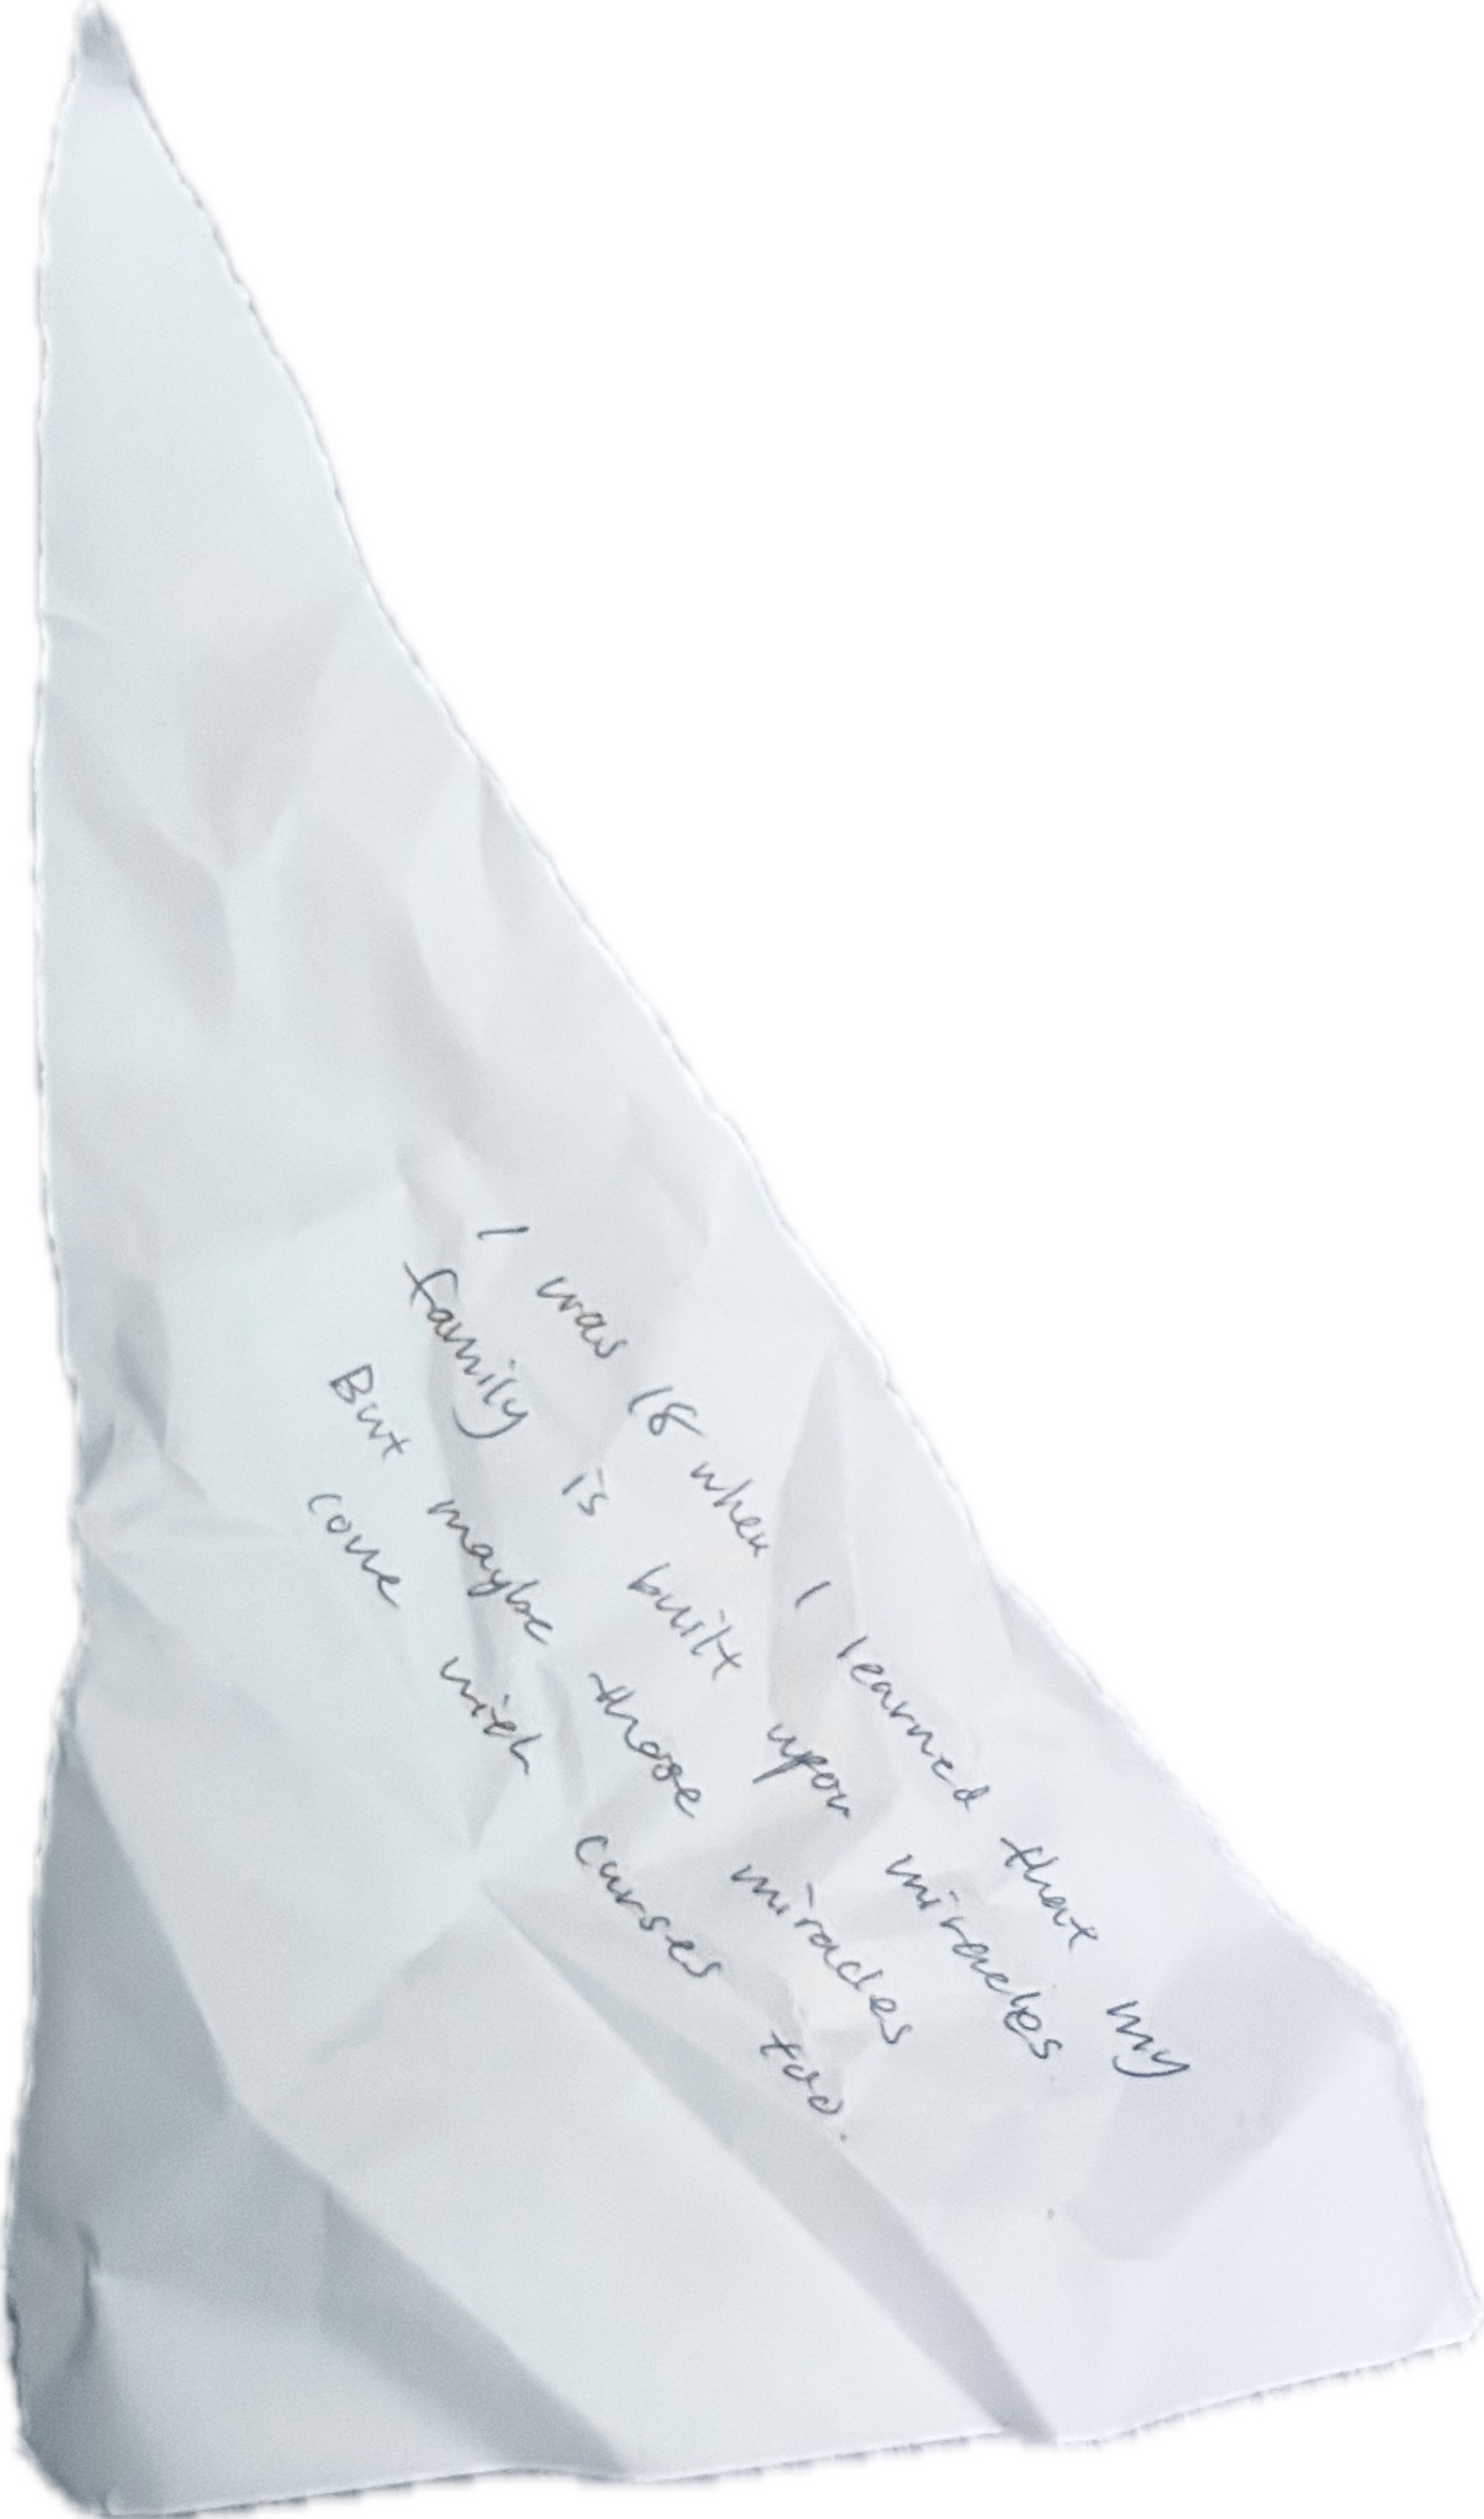 I was 18 when I learned that my
family is built upon miracles.
But maybe those miracles
come with curses too.